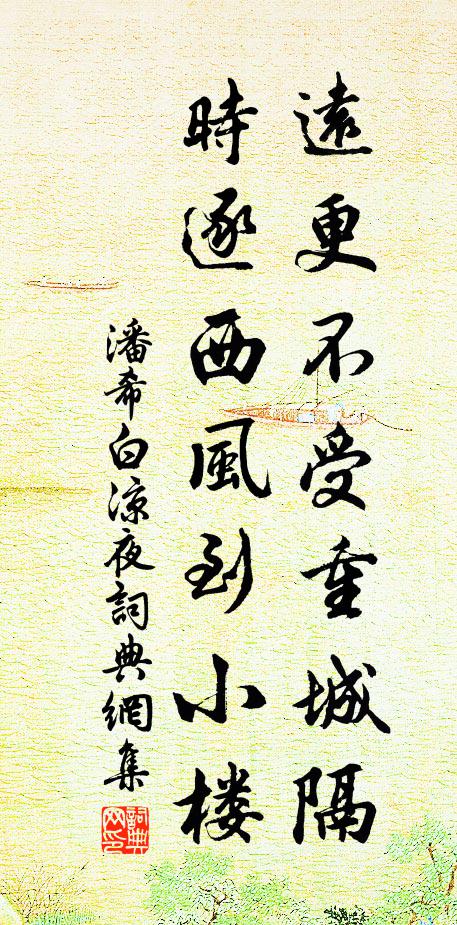 遠更不受重城隔
時逐西風到小楼
潘希白凉夜詞典網集
詞典网印